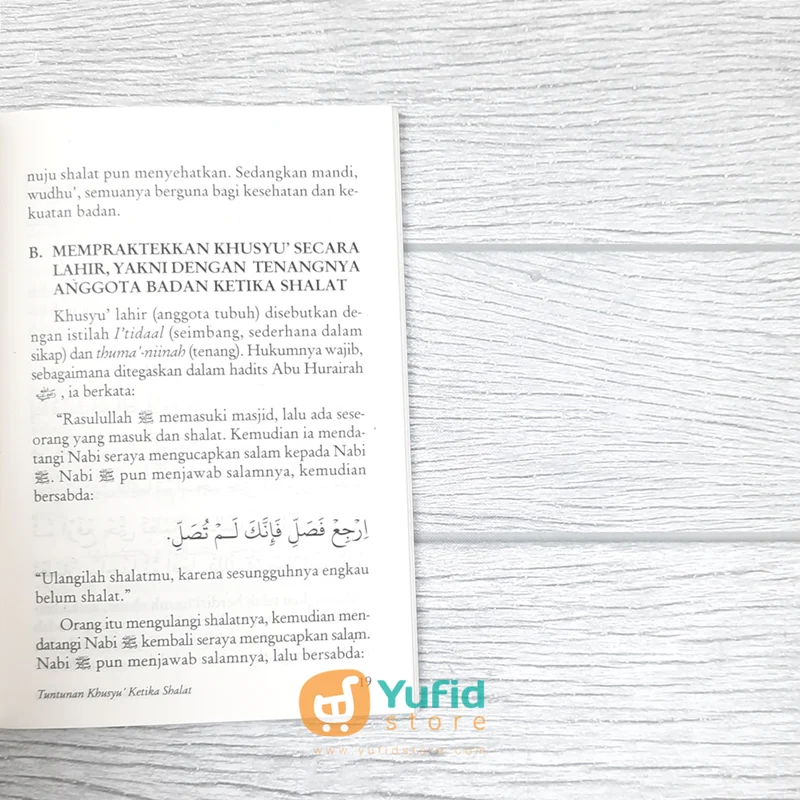 nuju shalat pun menyehatkan. Sedangkan mandi,
wudhu', semuanya berguna bagi kesehatan dan ke-
kuatan badan.
B. MEMPRAKTEKKAN KHUSYU' SECARA
LAHIR, YAKNI DENGAN TENANGNYA
ANGGOTA BADAN KETIKA SHALAT
Khusyu' lahir (anggota tubuh) disebutkan de-
ngan istilah I'tidaal (seimbang, sederhana dalam
sikap) dan thuma'-niinah (tenang). Hukumnya wajib,
sebagaimana ditegaskan dalam hadits Abu Hurairah
, ia berkata:
"Rasulullah ﷺ memasuki masjid, lalu ada sese-
orang yang masuk dan shalat. Kemudian ia menda-
tangi Nabi seraya mengucapkan salam kepada Nabi
ﷺ. Nabi ﷺ pun menjawab salamnya, kemudian
bersabda:
اِرْجِعْ فَصَلِّ فَإِنَّكَ لَمْ تُصَلِّ.
"Ulangilah shalatmu, karena sesungguhnya engkau
belum shalat."
Orang itu mengulangi shalatnya, kemudian men-
datangi Nabi ﷺ kembali seraya mengucapkan salam.
Nabi ﷺ pun menjawab salamnya, lalu bersabda:
Tuntunan Khusyu' Ketika Shalat 19
Yufid
store
www.yufidstore.com